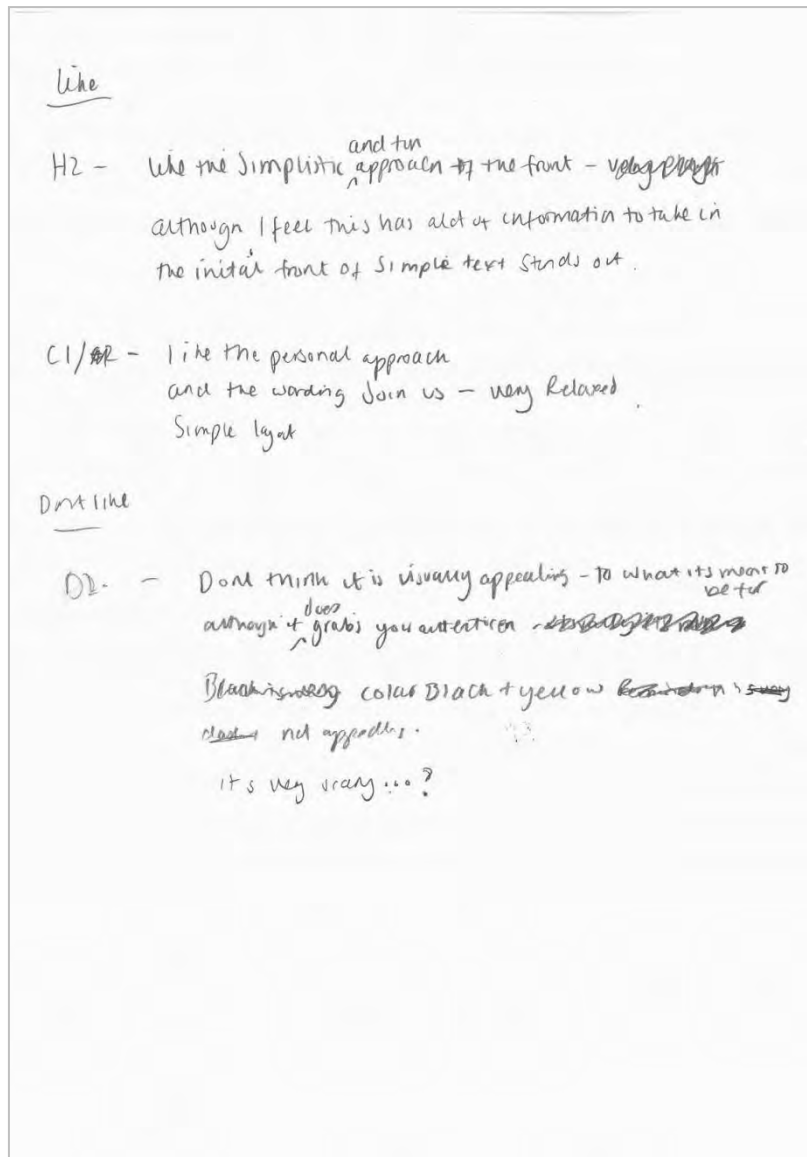 Like
H2 - like the simplistic and fun approach of the front -
although I feel this has alot of information to take in
the inital front of simple text stands out.
C1/ - like the personal approach
and the wording Join us - very Relaxed.
Simple layout
Dont like
D2. - Dont think it is visually appealing - to what its meant to be for
although it does grabs you attention
color Black + yellow
not appealing.
it's very scary...?